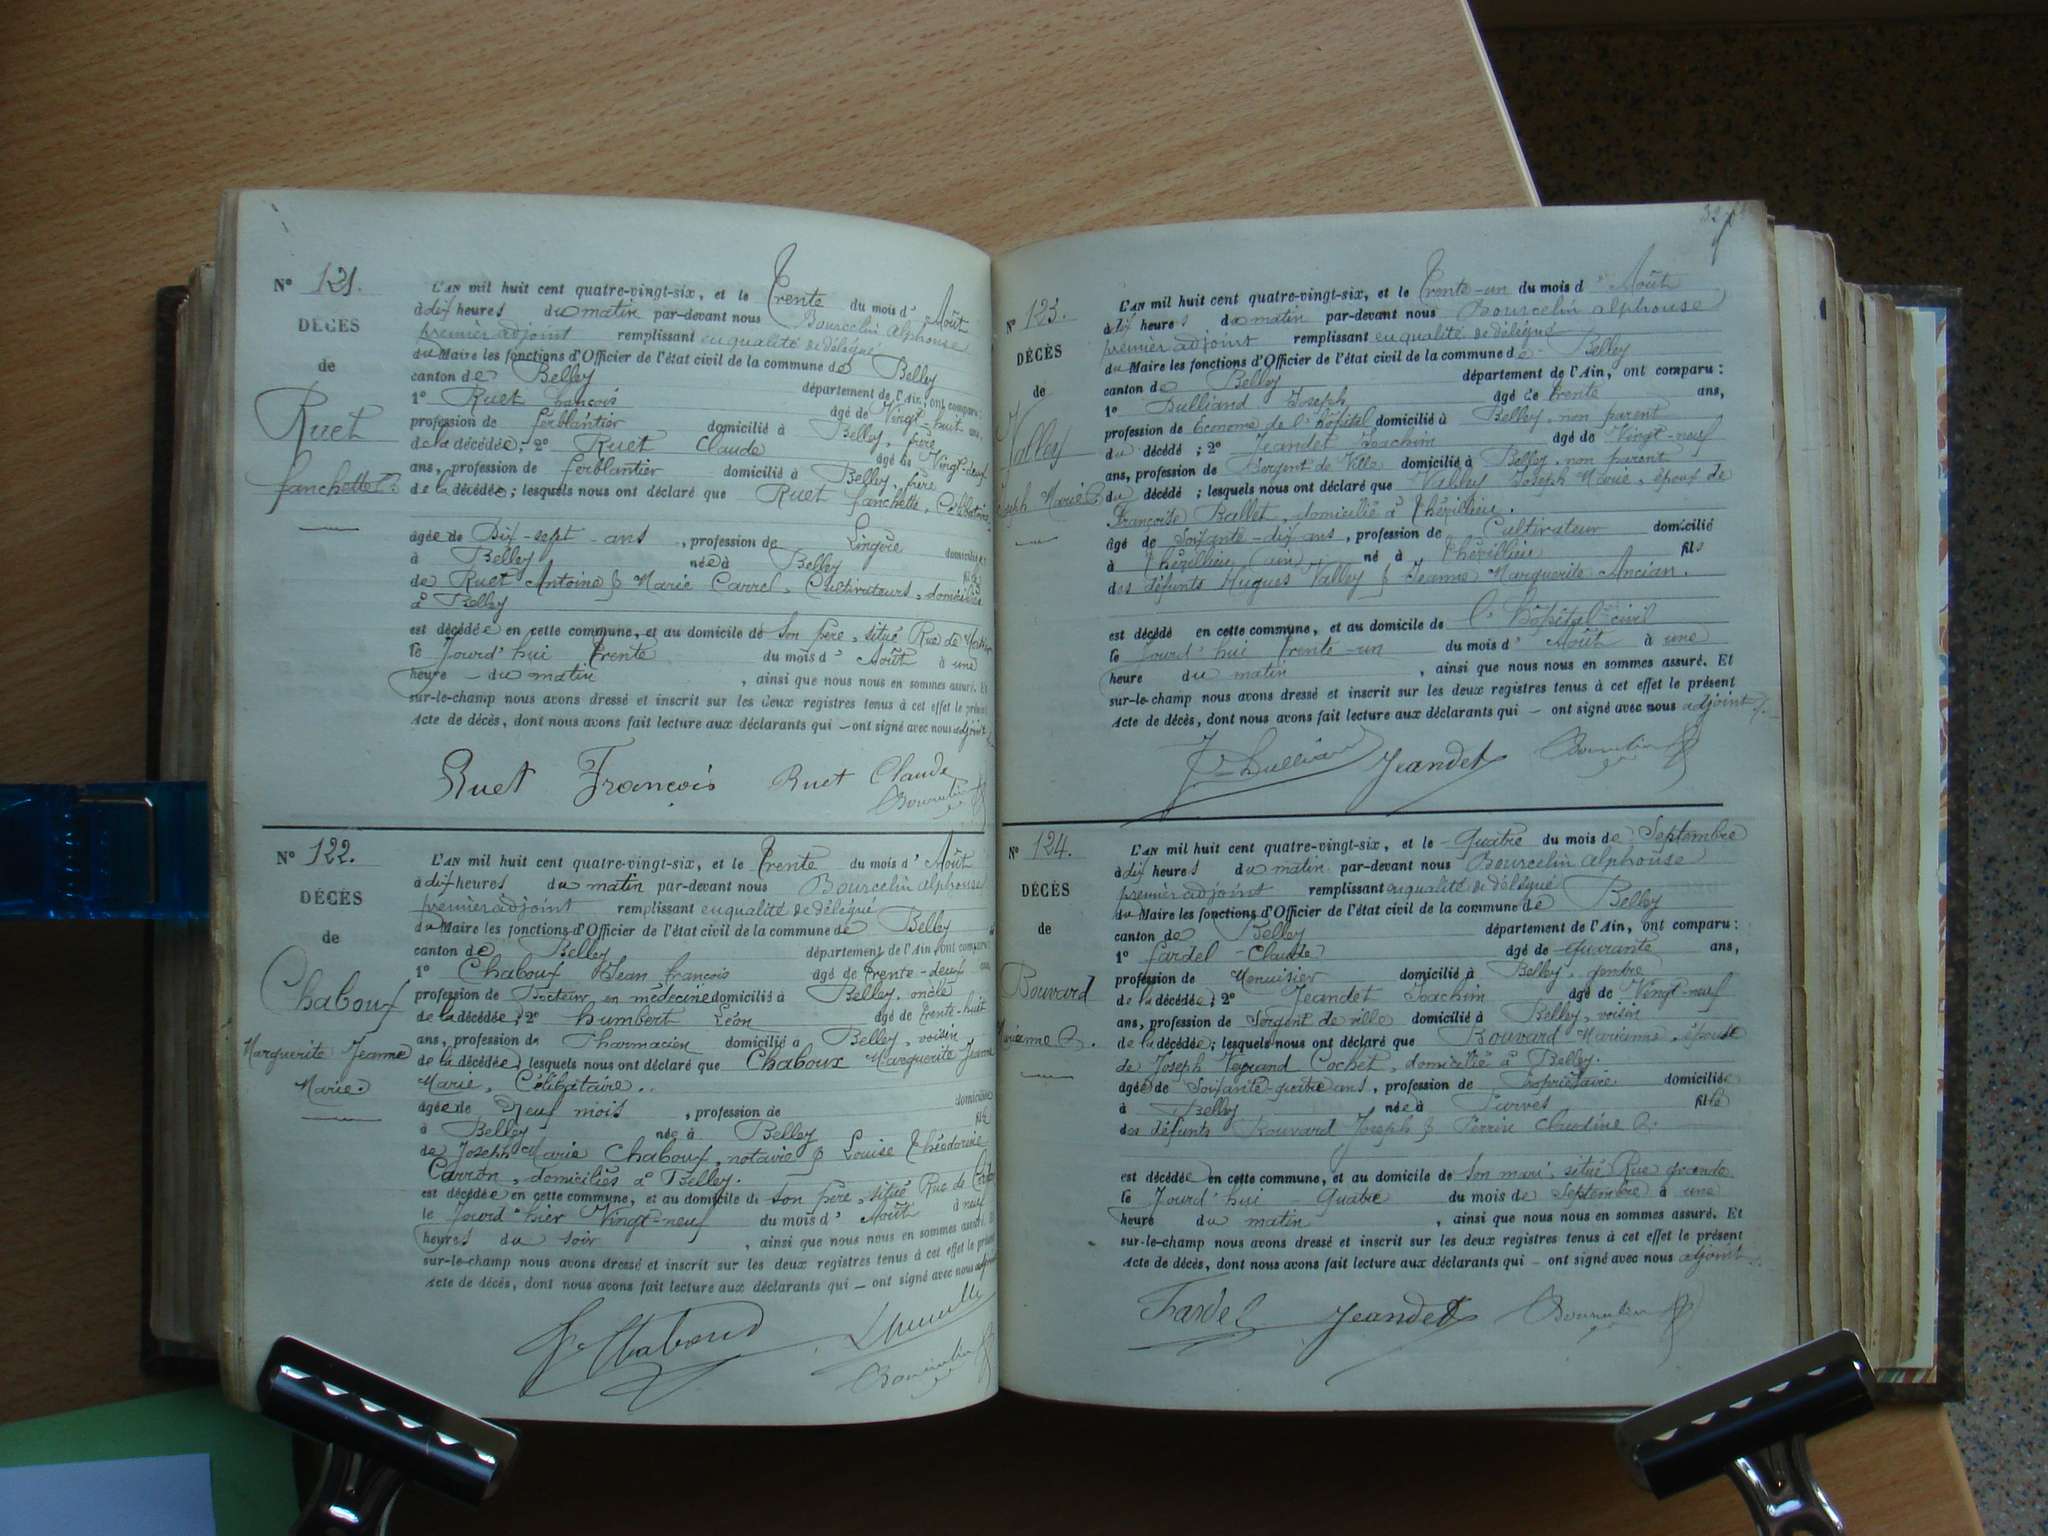 N° 121.
DÉCÈS
de
Ruet
fanchette
L'AN mil huit cent quatre-vingt-six, et le Trente du mois d' Août
à dix heures du matin par-devant nous Bourcelin Alphonse
premier adjoint remplissant en qualité de délégué
du Maire les fonctions d'Officier de l'état civil de la commune de Belley
canton de Belley département de l'Ain, ont comparu :
1° Ruet francois âgé de Vingt-huit ans,
profession de ferblantier domicilié à Belley, frère
de la décédée ; 2° Ruet Claude âgé de Vingt-deux
ans, profession de ferblantier domicilié à Belley, frère
de la décédée ; lesquels nous ont déclaré que Ruet fanchette, Célibataire,
âgée de Dix-sept ans, profession de Lingère domiciliée
à Belley née à Belley fille
de Ruet Antoine & Marie Carrel, Cultivateurs, domiciliés
à Belley
est décédée en cette commune, et au domicile de son père, situé Rue de
le Jourd'hui trente du mois d' Août à une
heure du matin, ainsi que nous nous en sommes assuré. Et
sur-le-champ nous avons dressé et inscrit sur les deux registres tenus à cet effet le présent
acte de décès, dont nous avons fait lecture aux déclarants qui ont signé avec nous adjoint
Ruet François Ruet Claude
Bourcelin
N° 122.
DÉCÈS
de
Chaboux
Marguerite Jeanne
Marie
L'AN mil huit cent quatre-vingt-six, et le Trente du mois d' Août
à dix heures du matin par-devant nous Bourcelin Alphonse
premier adjoint remplissant en qualité de délégué
du Maire les fonctions d'Officier de l'état civil de la commune de Belley
canton de Belley département de l'Ain, ont comparu :
1° Chaboux Jean francois âgé de trente-deux ans
profession de Docteur en médecine domicilié à Belley, oncle
de la décédée ; 2° humbert Léon âgé de trente-huit
ans, profession de Pharmacien domicilié à Belley, voisin
de la décédée ; lesquels nous ont déclaré que Chaboux Marguerite Jeanne
Marie, Célibataire.
âgée de Neuf mois, profession de domiciliée
à Belley née à Belley fille
de Joseph Marie Chaboux, notaire & Louise théodorine
Carron, domiciliés à Belley.
est décédée en cette commune, et au domicile de son père, situé Rue de
le Jourd'hier Vingt-neuf du mois d' Août à neuf
heures du soir, ainsi que nous nous en sommes assuré. Et
sur-le-champ nous avons dressé et inscrit sur les deux registres tenus à cet effet le présent
acte de décès, dont nous avons fait lecture aux déclarants qui ont signé avec nous adjoint
Bourcelin
N° 123.
DÉCÈS
de
Valley
Joseph Marie
L'AN mil huit cent quatre-vingt-six, et le Trente-un du mois d' Août
à dix heures du matin par-devant nous Bourcelin Alphonse
premier adjoint remplissant en qualité de délégué
du Maire les fonctions d'Officier de l'état civil de la commune de Belley
canton de Belley département de l'Ain, ont comparu :
1° Dulliand Joseph âgé de trente ans,
profession de Econome de l'hôpital domicilié à Belley, non parent
du décédé ; 2° Jeandet Joachim âgé de Vingt-neuf
ans, profession de Sergent de Ville domicilié à Belley, non parent
du décédé ; lesquels nous ont déclaré que Valley Joseph Marie, époux de
Françoise Ballet, domicilié à thézillieu.
âgé de Soixante-dix ans, profession de Cultivateur domicilié
à thézillieu (ain) né à thézillieu fils
des défunts Hugues Valley & Jeanne Marguerite Ancian.
est décédé en cette commune, et au domicile de l'hôpital civil
le Jourd'hui trente-un du mois d' Août à une
heure du matin, ainsi que nous nous en sommes assuré. Et
sur-le-champ nous avons dressé et inscrit sur les deux registres tenus à cet effet le présent
acte de décès, dont nous avons fait lecture aux déclarants qui ont signé avec nous adjoint
Dulliand Jeandet Bourcelin
N° 124.
DÉCÈS
de
Bouvard
Marianne
L'AN mil huit cent quatre-vingt-six, et le Quatre du mois de Septembre
à dix heures du matin par-devant nous Bourcelin Alphonse
premier adjoint remplissant en qualité de délégué
du Maire les fonctions d'Officier de l'état civil de la commune de Belley
canton de Belley département de l'Ain, ont comparu :
1° fardel Claude âgé de quarante ans,
profession de Menuisier domicilié à Belley, gendre
de la décédée ; 2° Jeandet Joachim âgé de Vingt-neuf
ans, profession de Sergent de ville domicilié à Belley, voisin
de la décédée ; lesquels nous ont déclaré que Bouvard Marianne, épouse
de Joseph Cochet, domicilié à Belley.
âgée de Soixante-quatre ans, profession de Propriétaire domiciliée
à Belley née à Surves fille
des défunts Bouvard Joseph & Perrin Claudine
est décédée en cette commune, et au domicile de son mari, situé Rue grande
le Jourd'hui Quatre du mois de Septembre à une
heure du matin, ainsi que nous nous en sommes assuré. Et
sur-le-champ nous avons dressé et inscrit sur les deux registres tenus à cet effet le présent
acte de décès, dont nous avons fait lecture aux déclarants qui ont signé avec nous adjoint
Fardel Jeandet Bourcelin